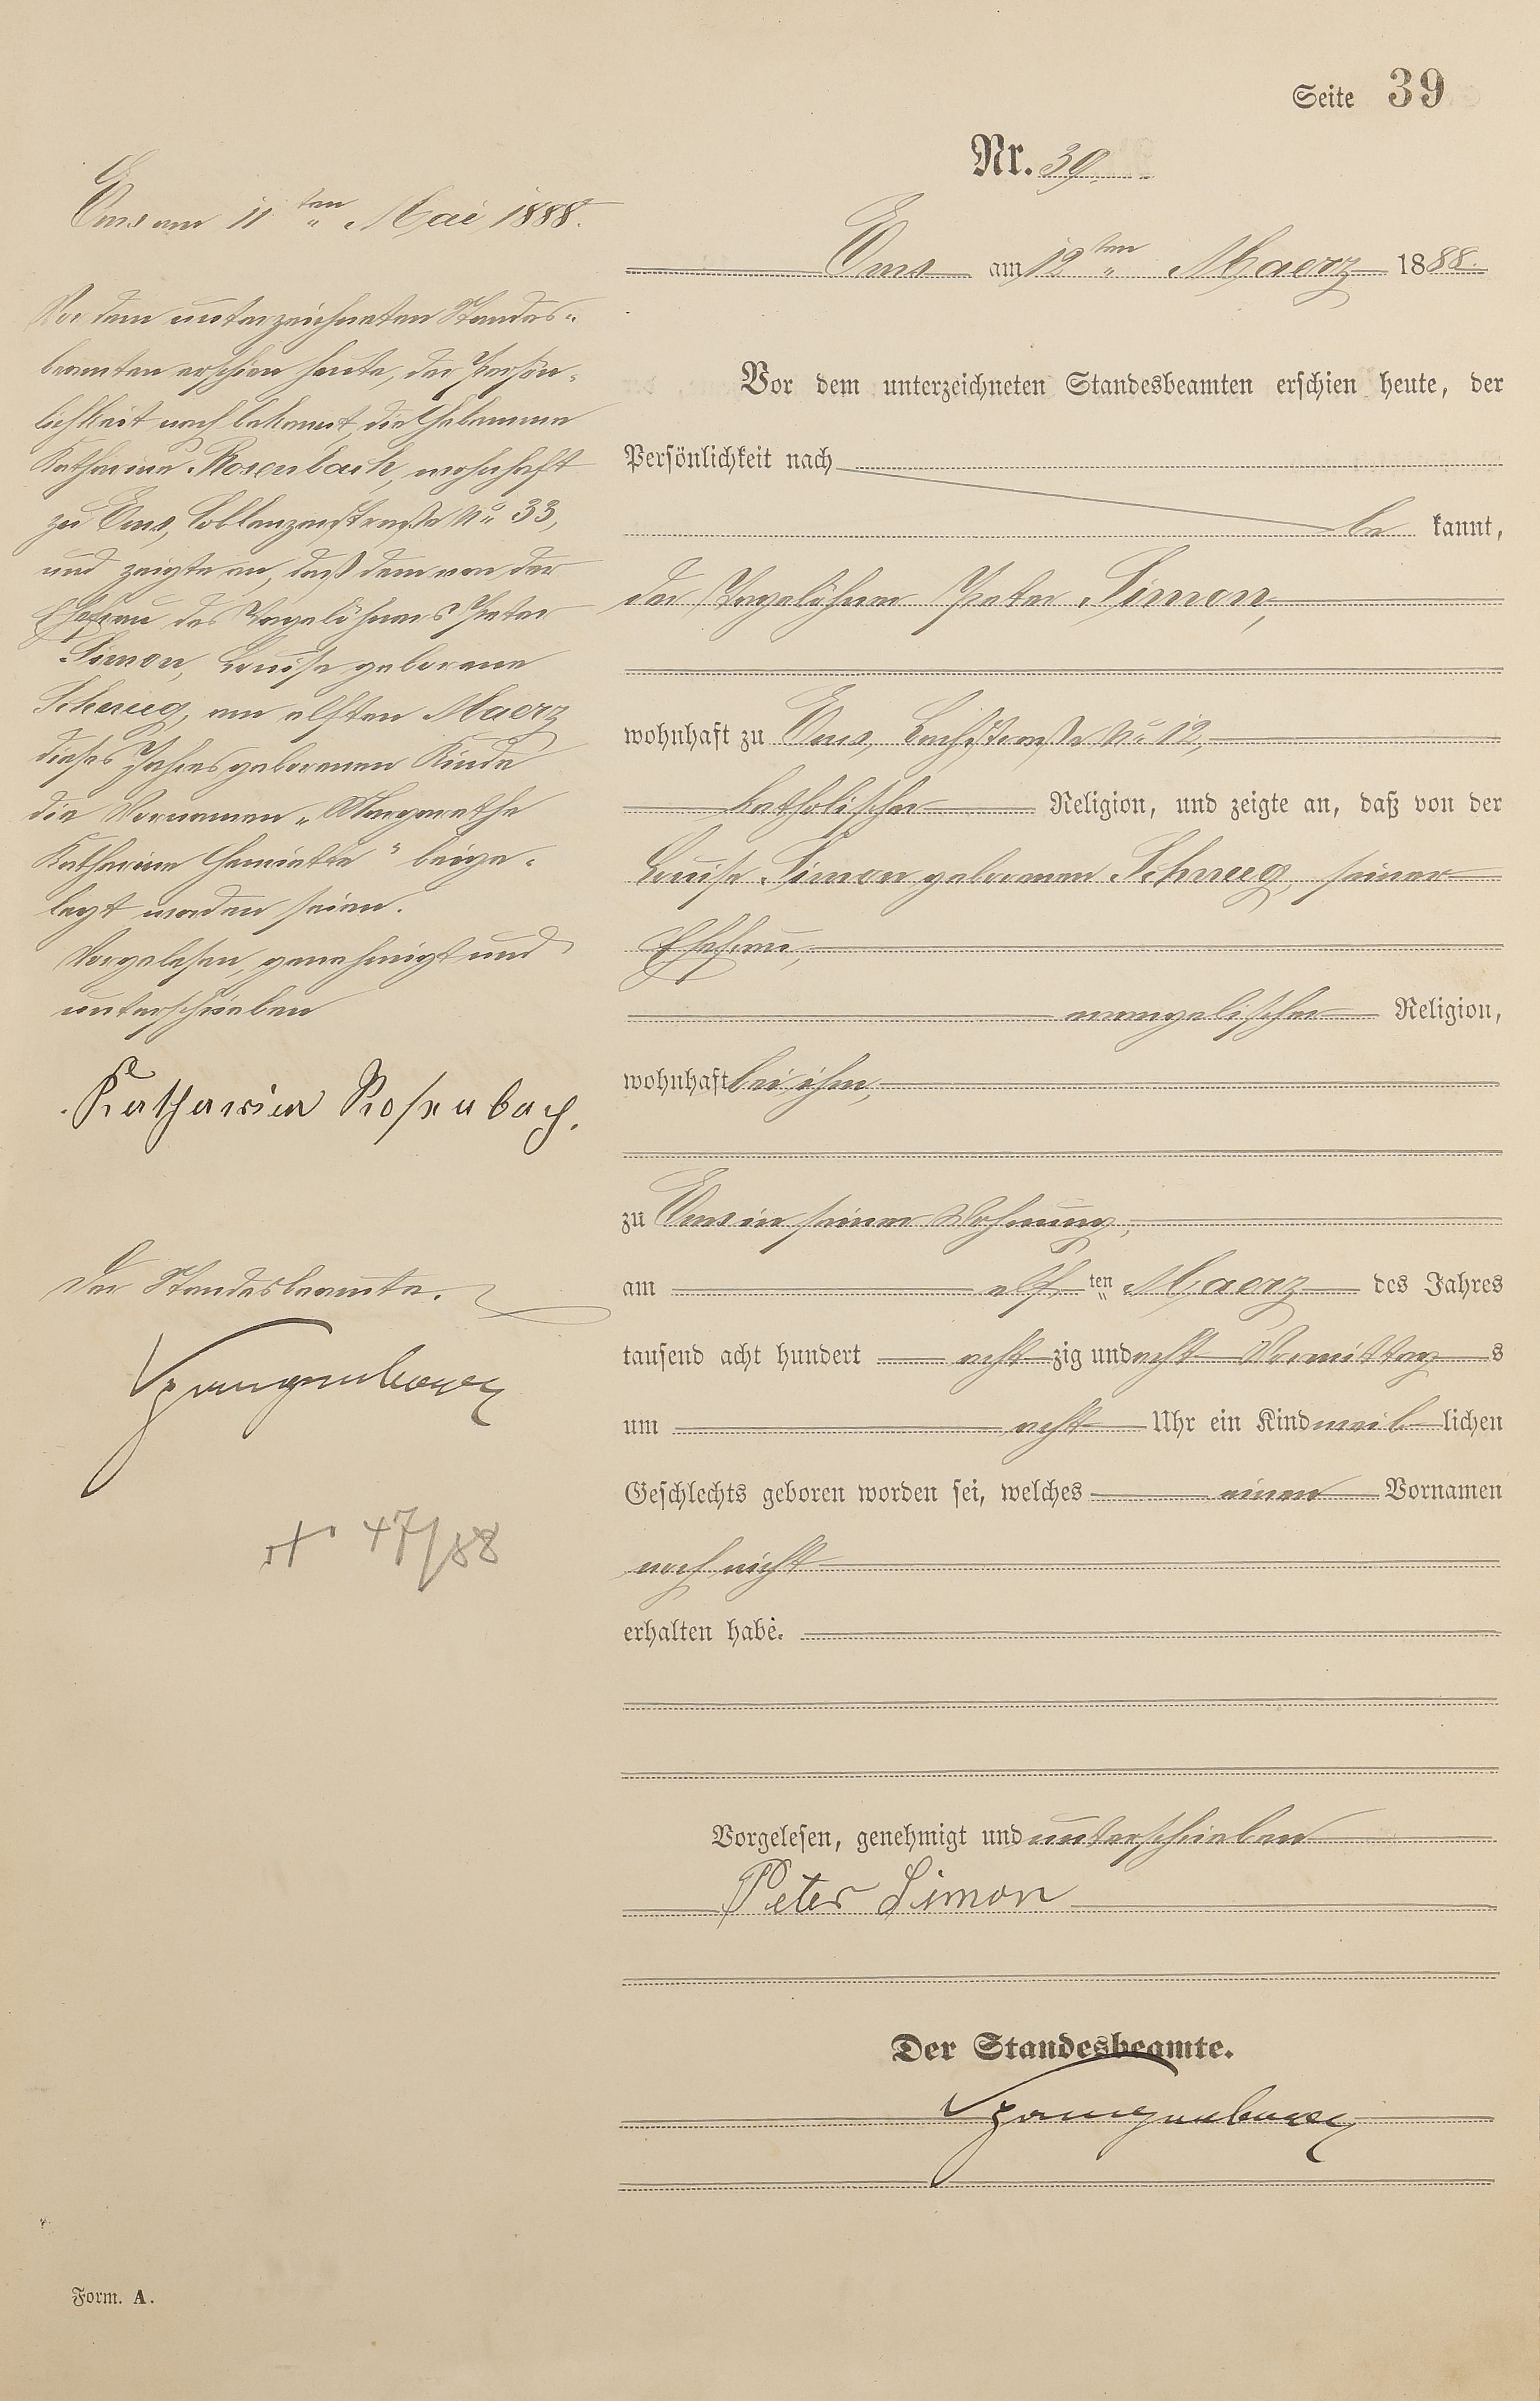 Seite 39
Nr. 39.
Ems am 12ten Maerz 1888.
Vor dem unterzeichneten Standesbeamten erschien heute, der
Persönlichkeit nach
be kannt,
der Tagelöhner Peter Simon,
wohnhaft zu Ems, Bachstraße No 12,
katholischer Religion, und zeigte an, daß von der
Louise Simon geborenen Schneeg, seiner
Ehefrau,
evangelischer Religion,
wohnhaft bei ihm,
zu Ems in seiner Wohnung,
am elf ten Maerz des Jahres
tausend acht hundert acht zig und acht Vormittag s
um acht Uhr ein Kind weib lichen
Geschlechts geboren worden sei, welches einen Vornamen
noch nicht
erhalten habe.
Vorgelesen, genehmigt und unterschrieben
Peter Simon
Der Standesbeamte.
Ems am 11ten Mai 1888.
Vor dem unterzeichneten Standes-
beamten erschien heute, der Persön-
lichkeit nach bekannt, die Hebamme
Katharina Rosenbach, wohnhaft
zu Ems, Coblenzerstraße No 33,
und zeigte an, daß dem von der
Ehefrau des Tagelöhners Peter
Simon, Louise geborene
Schneeg, am elften Maerz
dieses Jahres geborenen Kinde
die Vornamen „Margarethe
Katharina Henriette" beige-
legt worden seien.
Vorgelesen, genehmigt und
unterschrieben
Katharina Rosenbach.
Der Standesbeamte.
47/88
Form. A.